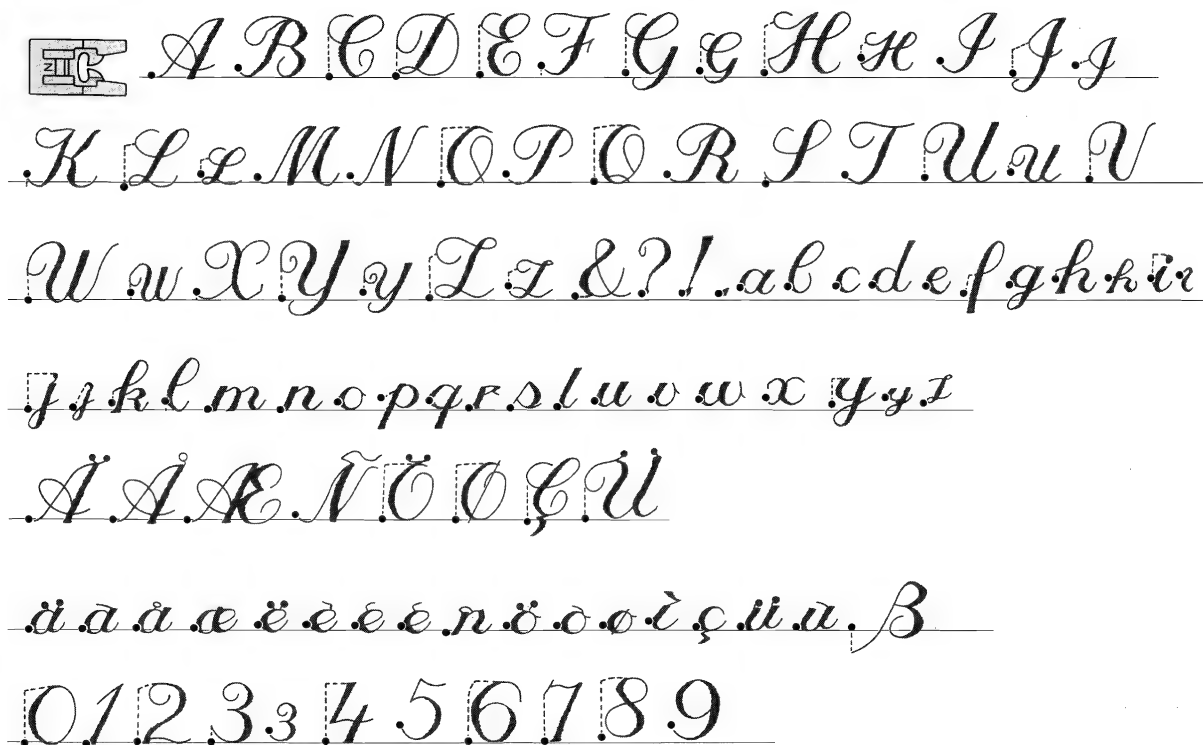 A B C D E F G G H H I J J
K L L M N O P Q R S T U U V
W W X Y Y Z Z & ? ! . , a b c d e f g h h i r
j j k l m n o p q r s t u v w x y y z
Ä Å Æ Ñ Ö Ø Ç Ü
ä à å æ ë è é ê ñ ö ò ø ì ç ü ù ß
0 1 2 3 3 4 5 6 7 8 9